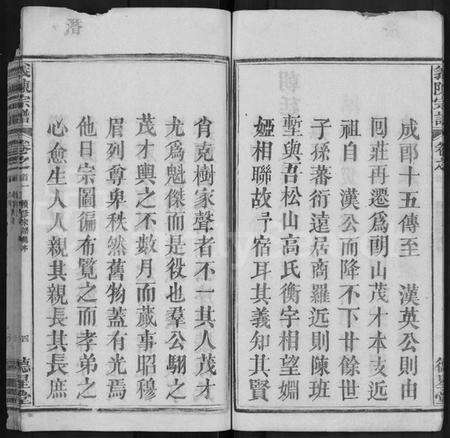 義陳宗譜
卷之
德星堂
成郡十五傳至 漢英公則由
囘莊再遷爲朝山茂才本支近
祖自 漢公而降不下廿餘世
子孫蕃衍遠居商羅近則陳班
塹與吾松山高氏衡宇相望婣
婭相聯故予宿耳其義知其賢
肯克樹家聲者不一其人茂才
尤爲魁傑而是役也羣公翺之
茂才輿之不數月而蕆事昭穆
眉列尊卑秩然舊物蓋有光焉
他日宗圖徧布覽之而孝弟之
心愈生人人親其親長其長庶
義陳宗譜
卷之
四
德星堂